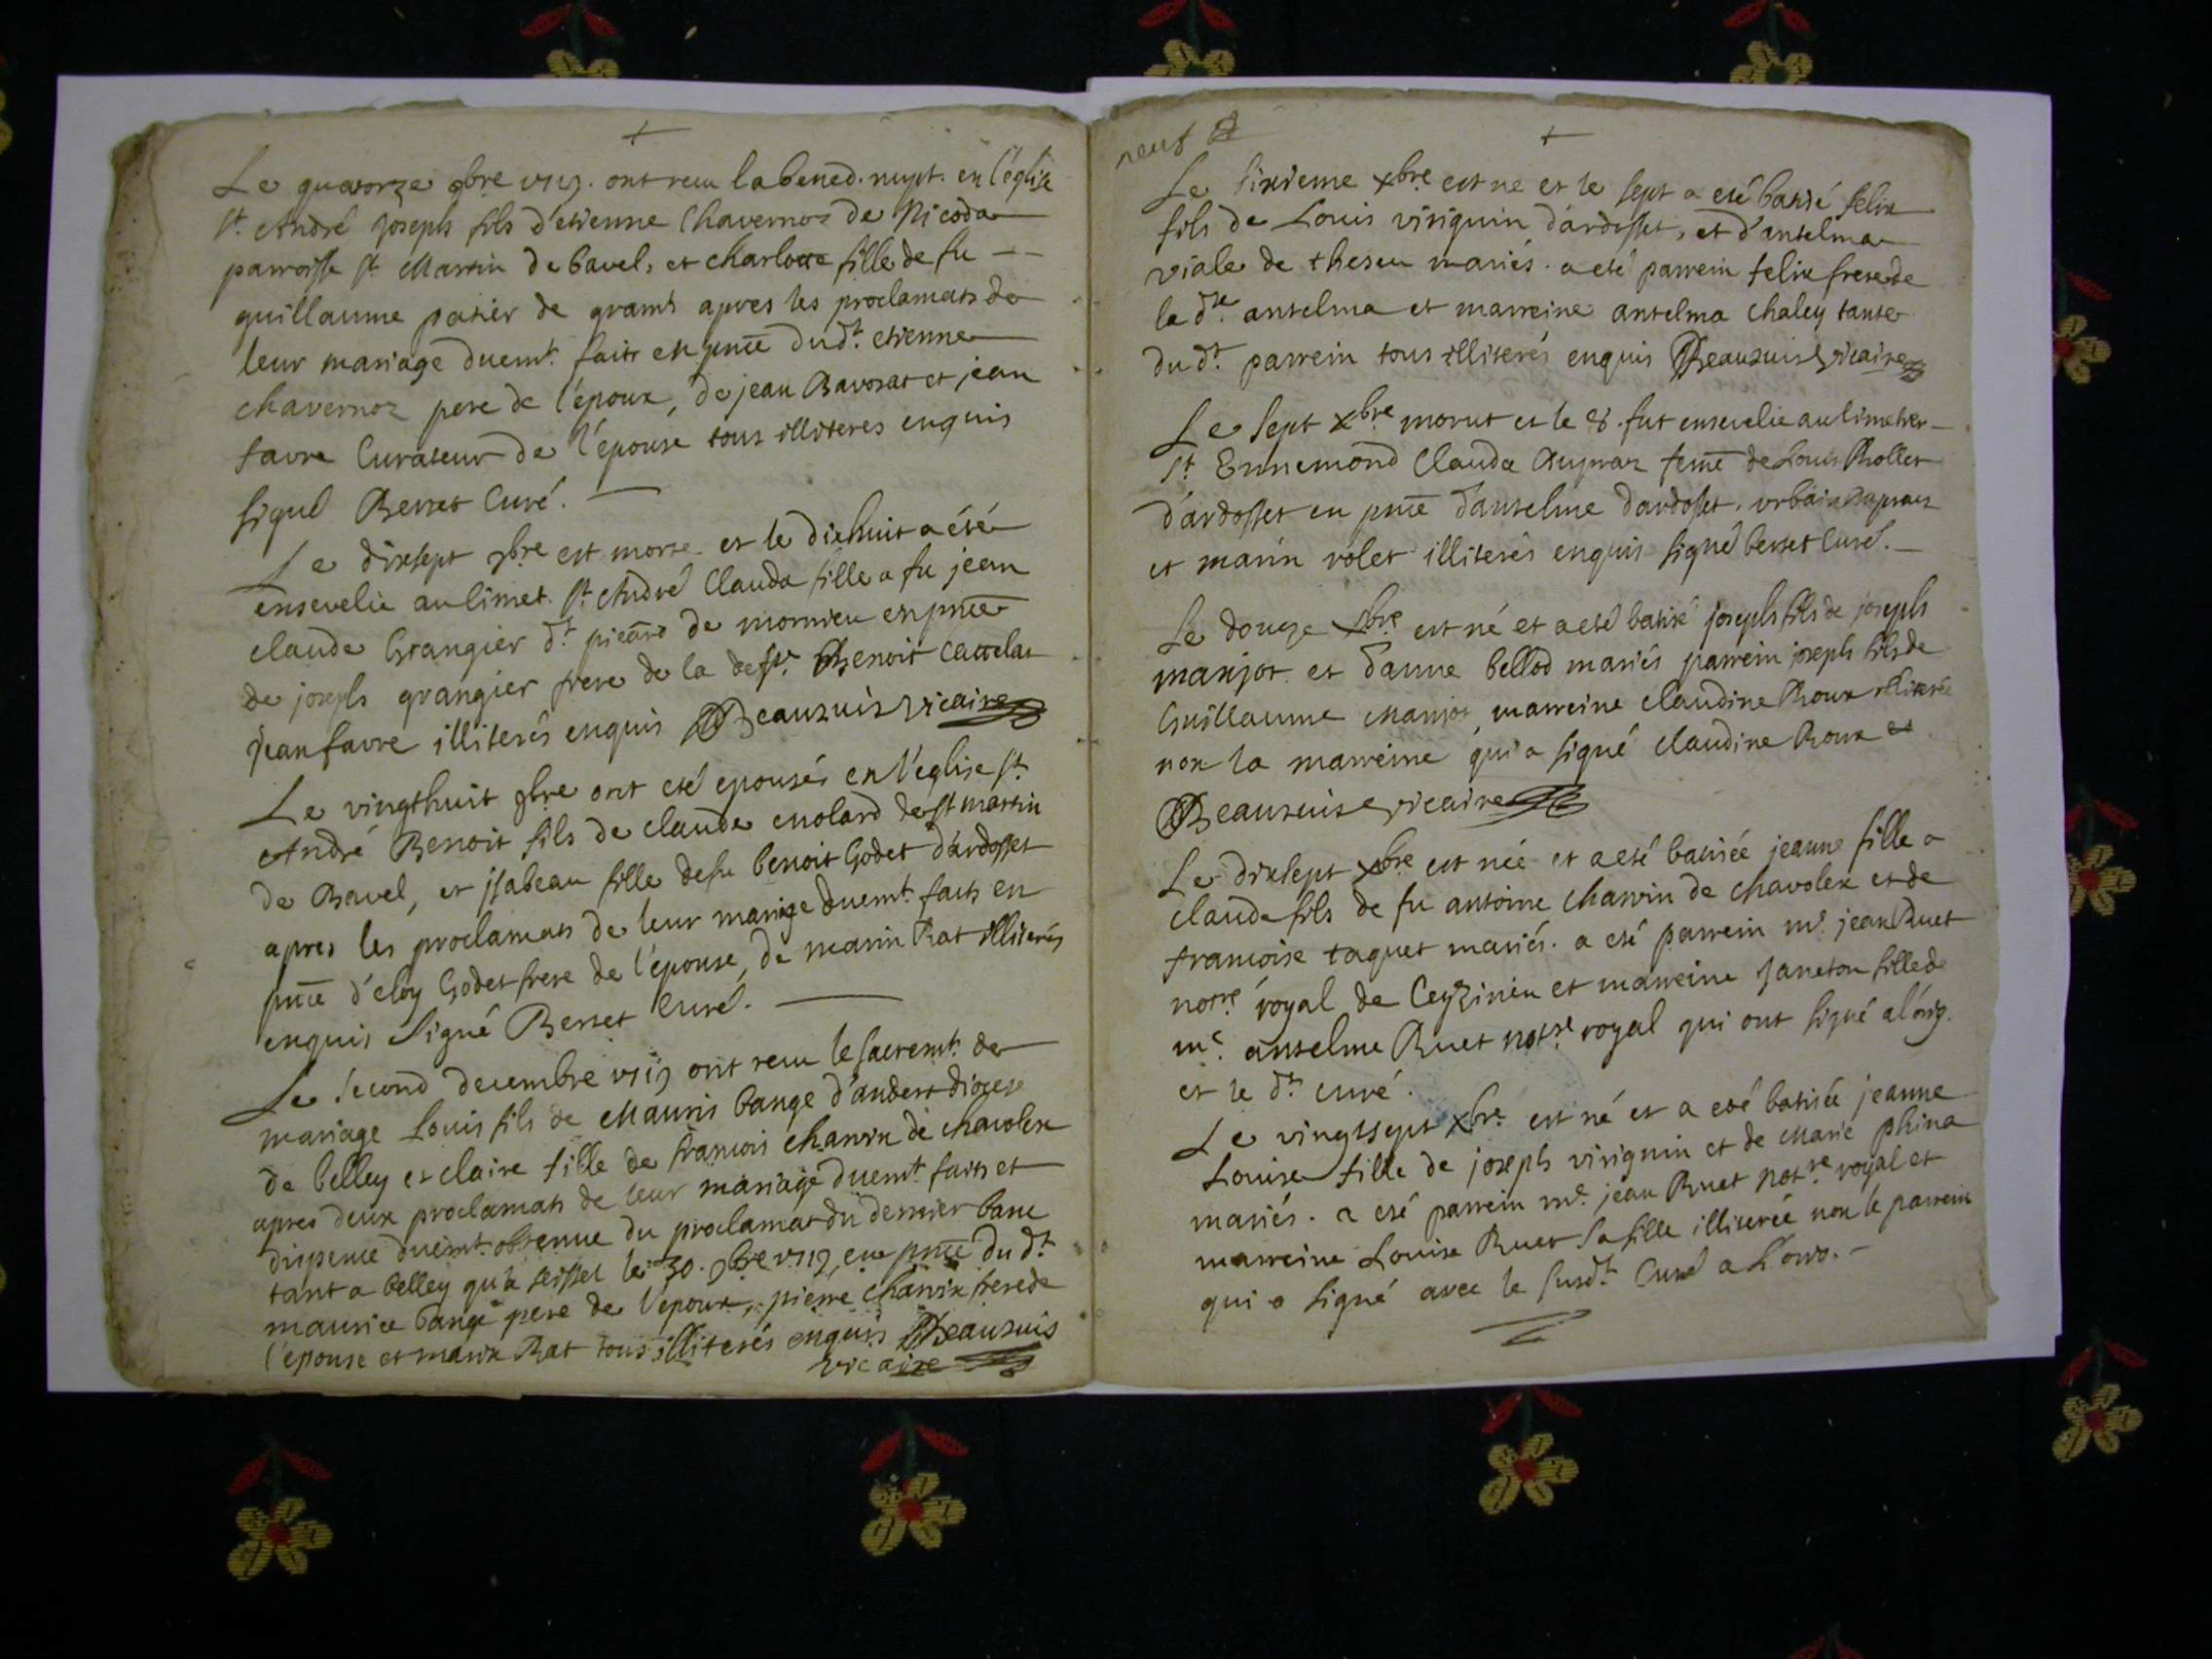 Le quatorze 9bre ont receu la bened. nupt. en l'église
st. André joseph fils d'etienne Chavernoz de Nicoda
parroisse st. Martin de bavel, et charlotte fille de fu
guillaume patier de gramt apres les proclamats de
leur mariage duemt. faits en pnce dudt. etienne
chavernoz pere de l'époux, de jean Bavozat et jean
favre Curateur de l'épouse tous illiteres enquis
signé Berret Curé.
Le dixsept 9bre est morte et le dixhuit a été
ensevelie au Cimet. st. André Clauda fille a fu jean
claude Grangier dt. picard de mornieu en pnce
de joseph grangier frere de la defte. Benoit cattelat
jean favre illiterés enquis Beauzuis vicaire
Le vingthuit 9bre ont eté epousés en l'eglise st.
André Benoit fils de claude molard de st martin
de Bavel, et jsabeau fille defu benoit Godet d'ardosset
apres les proclamats de leur mariage duemt. faits en
pnce d'eloy Godet frere de l'épouse, de marin Rat illiterés
enquis Signé Berret Curé.
Le second decembre ont receu le sacremt. de
mariage Louis fils de Mauris bange d'andert diocese
de belley et claire fille de francois charvin de chavolex
apres deux proclamats de leur mariage duemt. faits et
dispence duemt. obtenue du proclamat du dernier banc
tant a belley qu'a seissel le 30. 9bre en pnce du dt.
maurice bange pere de l'époux, pierre charvin frere de
l'épouse et marin Rat tous illiterés enquis Beauzuis
vicaire
neuf
Le sixieme xbre est né et le sept a eté batisé felix
fils de Louis viriguin d'ardosset, et d'antelma
viale de theseu mariés. a eté parrein felix frere de
la dte. antelma et marreine antelma chaley tante
du dt. parrein tous illiterés enquis Beauzuis vicaire
Le sept xbre morut et le 8. fut ensevelie au Cimetier
st. Ennemond Clauda feme de Louis Rollet
d'ardosset en pnce d'antelme d'ardosset. urbain
et marin rolet illiterés enquis signé berret Curé.
Le douze xbre est né et a eté batisé joseph fils de joseph
manjot et d'anne bellod mariés parrein joseph fils de
Guillaume manjot marreine claudine Roux illiterés
non la marreine qui a signé claudine Roux et
Beauzuis vicaire
Le dixsept xbre est née et a eté batisée jeanne fille a
claude fils de fu antoine charvin de chavolex et de
francoise taquet mariés. a eté parrein me. jean Ruet
notre. royal de Ceyzirieu et marreine janeton fille de
me. anselme Ruet notre. royal qui ont signé a l'orig.
et le dt. curé.
Le vingtsept xbre est né et a eté batisée jeanne
Louise fille de joseph viriguin et de Marie phina
mariés. a eté parrein me. jean Ruet notre royal et
marreine Louise Ruet sa fille illiterée non le parrein
qui a signé avec le susdt. Curé